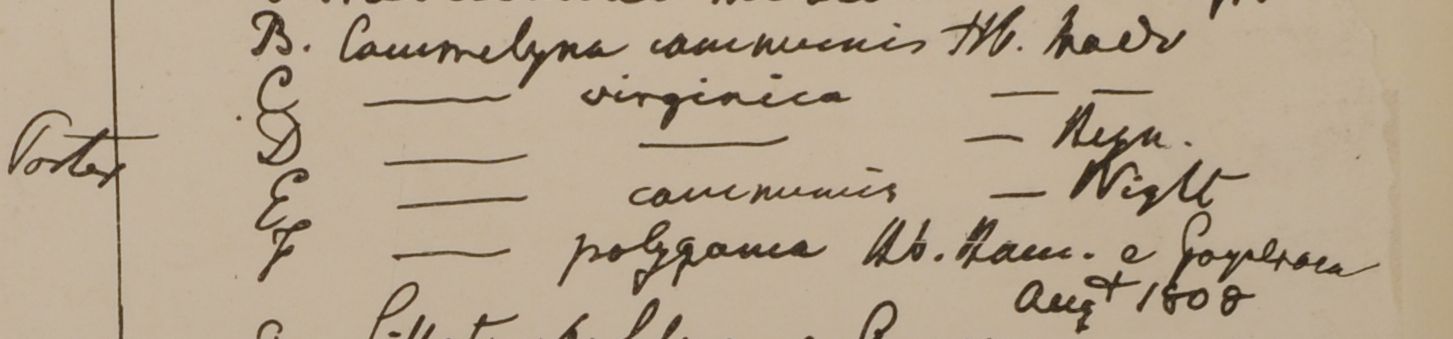 B. Commelyna communis Hb. Madr
C —— virginica — —
D —— —— — Heyn.
Porter
E —— communis — Wight
F —— polygama Hb. Ham. e Goyalpara
Augt 1808